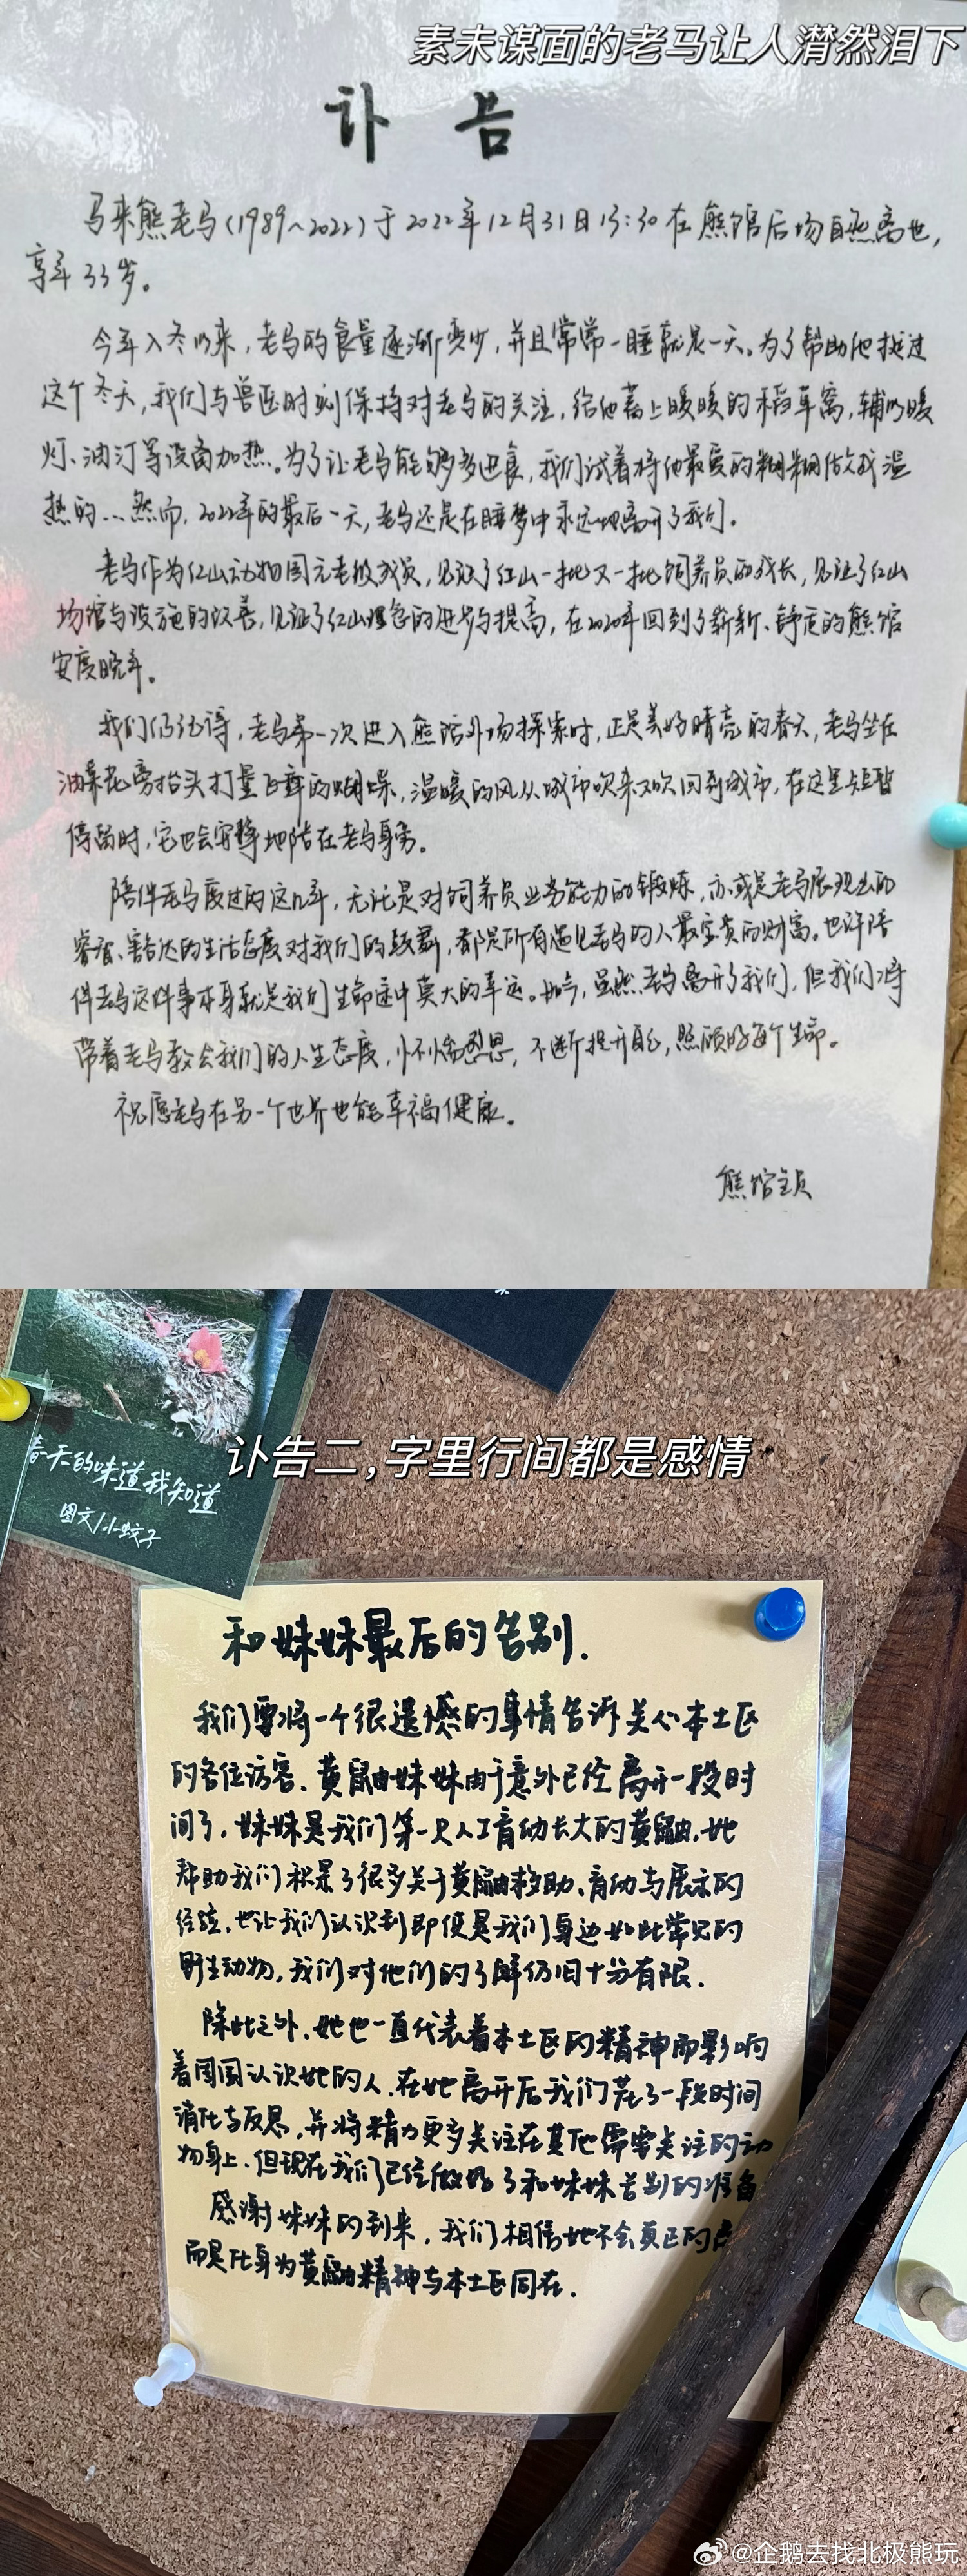 素未谋面的老马让人潸然泪下
讣 告
马来熊老马(1989~2022)于2022年12月31日13:30在熊馆后场自然离世,
享年33岁。
今年入冬以来,老马的食量逐渐变少,并且常常一睡就是一天。为了帮助他挺过
这个冬天,我们与兽医时刻保持对老马的关注,给他蓄上暖暖的稻草窝,辅以暖
灯、油汀等设备加热。为了让老马能够多进食,我们试着将他最爱的糊糊做成温
热的...然而,2022年的最后一天,老马还是在睡梦中永远地离开了我们。
老马作为红山动物园元老级成员,见证了红山一批又一批饲养员的成长,见证了红山
场馆与设施的改善,见证了红山理念的进步与提高,在2020年回到了崭新、舒适的熊馆
安度晚年。
我们仍记得,老马第一次进入熊馆外场探索时,正是美好晴亮的春天,老马坐在
油菜花旁抬头打量飞舞的蝴蝶,温暖的风从城市吹来又吹回到城市,在这里短暂
停留时,它也会安静地陪在老马身旁。
陪伴老马度过的这几年,无论是对饲养员业务能力的锻炼,亦或是老马展现出的
睿智、豁达的生活态度对我们的鼓舞,都是所有遇见老马的人最宝贵的财富。也许陪
伴老马这件事本身就是我们生命途中莫大的幸运。如今,虽然老马离开了我们,但我们将
带着老马教会我们的人生态度,怀惴恩,不断提升自己,照顾好每个生命。
祝愿老马在另一个世界也能幸福健康。
熊馆全员
春天的味道我知道
图文/小蚊子
讣告二,字里行间都是感情
和妹妹最后的告别.
我们要将一个很遗憾的事情告诉关心本土区
的各位访客.黄鼬妹妹由于意外已经离开一段时
间了.妹妹是我们第一只人工育幼长大的黄鼬.她
帮助我们积累了很多关于黄鼬救助、育幼与展示的
经验,也让我们认识到即便是我们身边如此常见的
野生动物,我们对他们的了解仍旧十分有限.
除此之外,她也一直代表着本土区的精神而影响
着周围认识她的人.在她离开后我们花了一段时间
消化与反思,并将精力更多关注在其他需要关注的动
物身上.但现在我们已经做好了和妹妹告别的准备
感谢妹妹的到来,我们相信她不会真正的
而是化身为黄鼬精神与本土区同在.
@企鹅去找北极熊玩